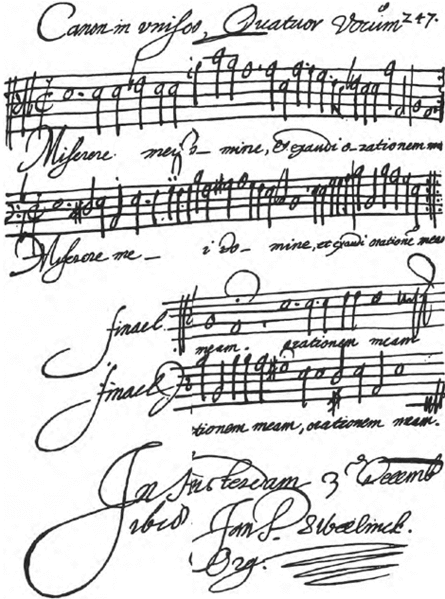 Canon in Unisos, Quatuor Vocum 247.
Miserere mei Do- mine, et exaudi o-rationem m
Miserere me- i Do- mine, et exaudi oratione meam
finael
meam. orationem meam
finael
tionem meam, orationem meam.
In Amsterdam 3 Decemb
Jan P. Swelinck.
Org.